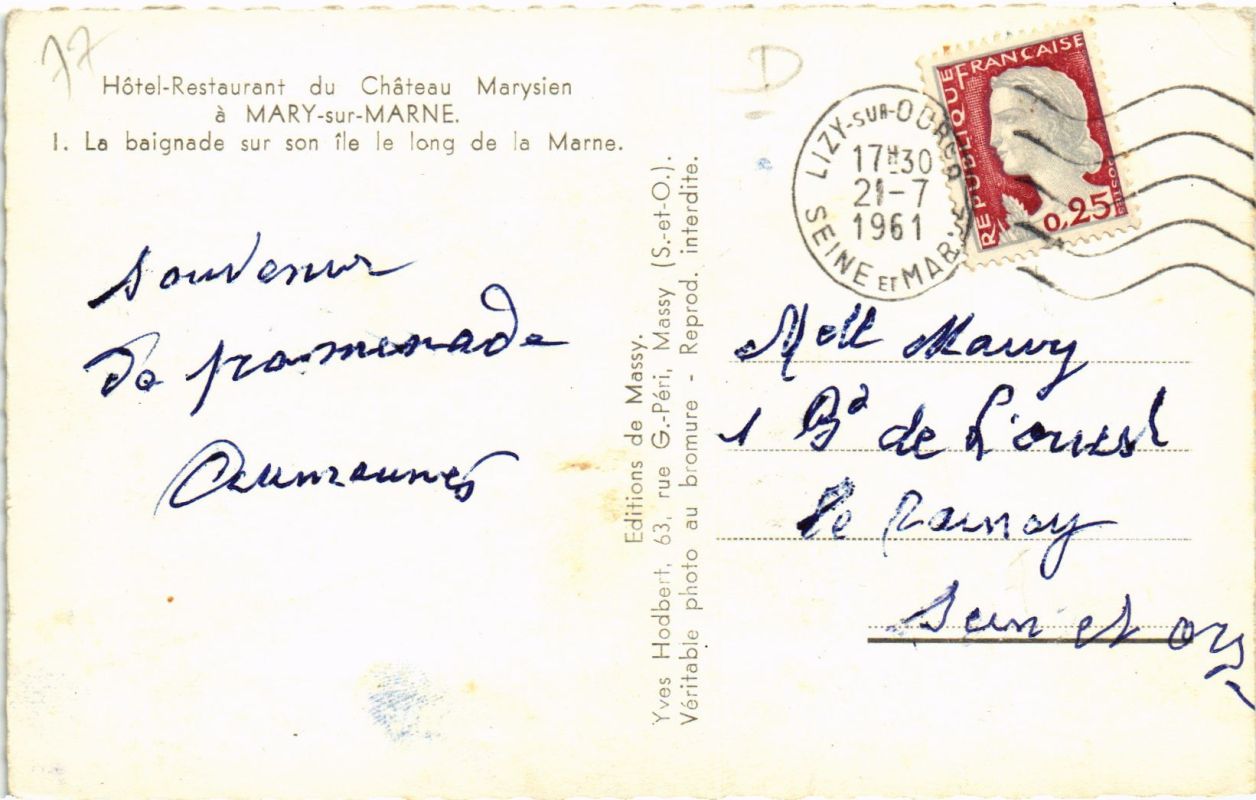 77
Hôtel-Restaurant du Château Marysien
à MARY-sur-MARNE.
1. La baignade sur son île le long de la Marne.
Souvenir
De promenade
Editions de Massy.
Yves Hodbert, 63, rue G.-Péri, Massy (S.-et-O.).
Véritable photo au bromure - Reprod. interdite.
D
LIZY-SUR-OURCQ
17H30
21-7
1961
SEINE ET MARNE
REPUBLIQUE FRANÇAISE
0,25
POSTES
Melle
1 Bd de L'ouest
le Rainsy
Sein et